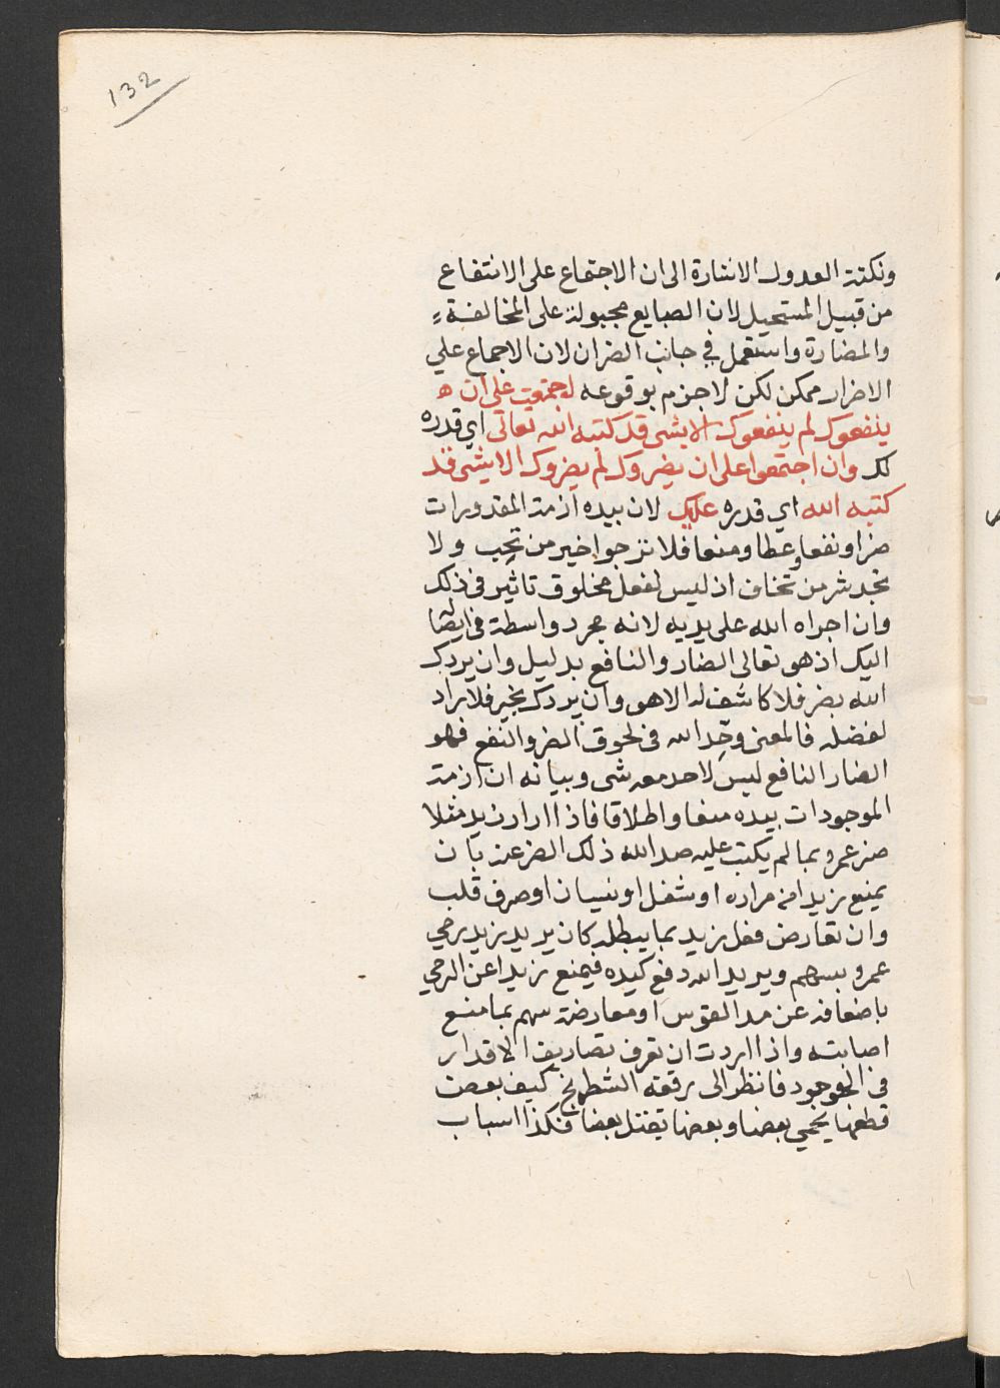 132
ونكتة العدول الاشارة الى ان الاجتماع على الانتفاع
من قبيل المستحيل لان الصبايع مجبولة على المخالفة
والمضارة واستعمل في جانب الضر ان لان الاجماع علي
الاضرار ممكن لكن لا جزم بوقوعه اجتمعت على ان
ينفعوك لم ينفعوك الا بشى قد كتبه الله تعالى اي قدره
لك وان اجتمعوا على ان يضروك لم يضروك الا بشى قد
كتبه الله اي قدره عليك لان بيده ازمة المقدورات
ضرا ونفعا وعطا ومنعا فلا ترجوا خير من تحب ولا
تجد شر من تخاف اذ ليس لفعل مخلوق تاثير في ذلك
وان اجراه الله على يديه لانه مجرد واسطة في ايصاله
اليك اذ هو تعالى الضار والنافع بدليل وان يردك
الله بضر فلا كاشف له الا هو وان يردك بخير فلا راد
لفضله فالمعنى وحّد الله في لحوق الضر والنفع فهو
الضار النافع ليس لاحد معه شى وبيانه ان ازمة
الموجودات بيده منعا واطلاقا فاذا اراد زيد مثلا
ضر عمرو بما لم يكتب عليه صد الله ذلك الضر عنه بان
يمنع زيدا من مراده او شغل او نسيان او صرف قلب
وان تعارض فعل زيد بما يبطله كان يريد زيد رمي
عمرو بسهم ويريد الله دفع كيده فيمنع زيدا عن الرمي
باضعافه عن مد القوس او معارضة سهم بما منع
اصابته واذا اردت ان تعرف تصاريف الاقدار
في الوجود فانظر الى رقعة الشطرنج كيف بعض
قطعها يحمي بعضا وبعضها يقتل بعضا فكذا اسباب